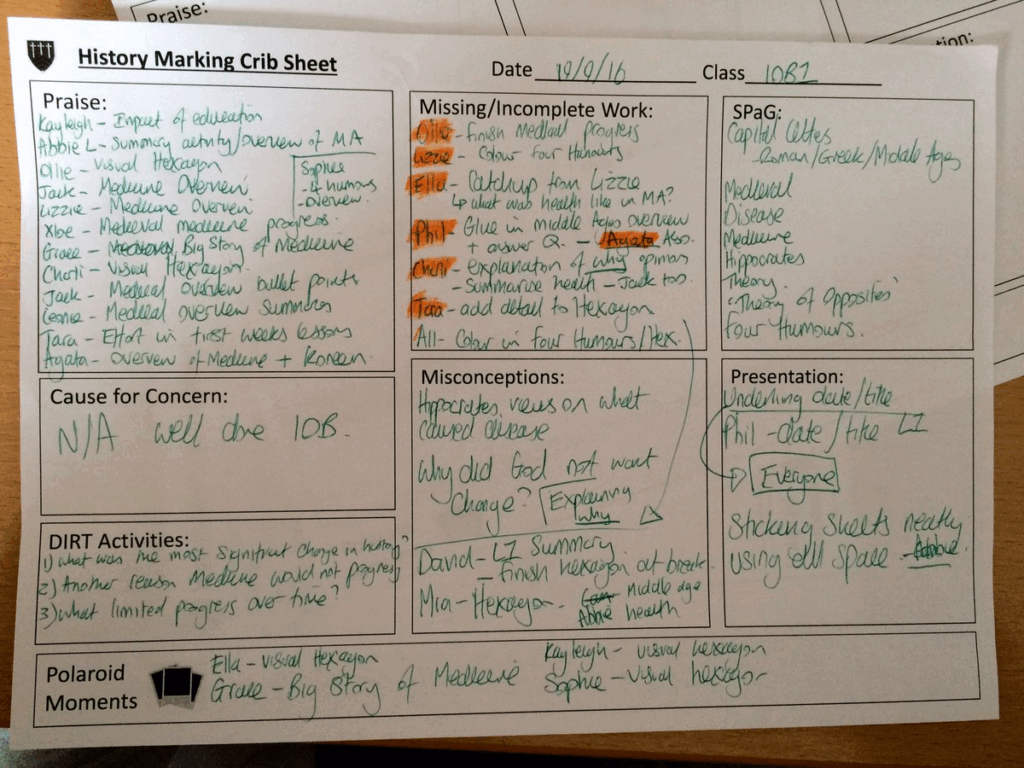 Praise:
History Marking Crib Sheet
Date 19/9/16 Class 10B1
Praise:
Kayleigh - Impact of education
Abbie L - Summary activity/overview of MA
Ollie - Visual Hexagon
Jack - Medicine Overview
Lizzie - Medicine Overview
Sophie
- 4 humours
- overview.
Xloe - Medieval medicine progress.
Grace - Medieval Big Story of Medicine
Charli - Visual Hexagon.
Jack - Medieval overview bullet points
Leonie - Medieval overview Summary
Tara - Effort in first weeks lessons
Agata - overview of Medicine + Korean.
Missing/Incomplete Work:
Ollie - finish Medieval progress
Lizzie - Colour four Humours
Ella - Catchup from Lizzie
↳ what was health like in MA?
Phil - Glue in middle Ages overview
+ answer Q. - Agata Also.
Charli - explanation of why opinions
- Summarise health - Jack too.
Tara - add detail to Hexagon
All - Colour in four Humours/Hex.
SPaG:
Capital letters
- Roman/Greek/Middle Ages
Medieval
Disease
Medicine
Hippocrates
Theory.
"Theory of Opposites"
Four Humours.
Cause for Concern:
N/A well done 10B.
Misconceptions:
Hippocrates views on what
caused disease
Why did God not want
Change?
Explaining
why
David - LI Summary
- finish hexagon at break.
Mia - Hexagon.
Middle age
Abbie health
Presentation:
Underling date/title
Phil - date/title LI
Everyone
Sticking sheets neatly
using all space - Abbie.
DIRT Activities:
1) What was the most significant change in history?
2) Another reason Medicine would not progress
3) What limited progress over time?
Polaroid
Moments
Ella - Visual Hexagon
Grace - Big Story of Medicine
Kayleigh - visual hexagon
Sophie - Visual hexagon